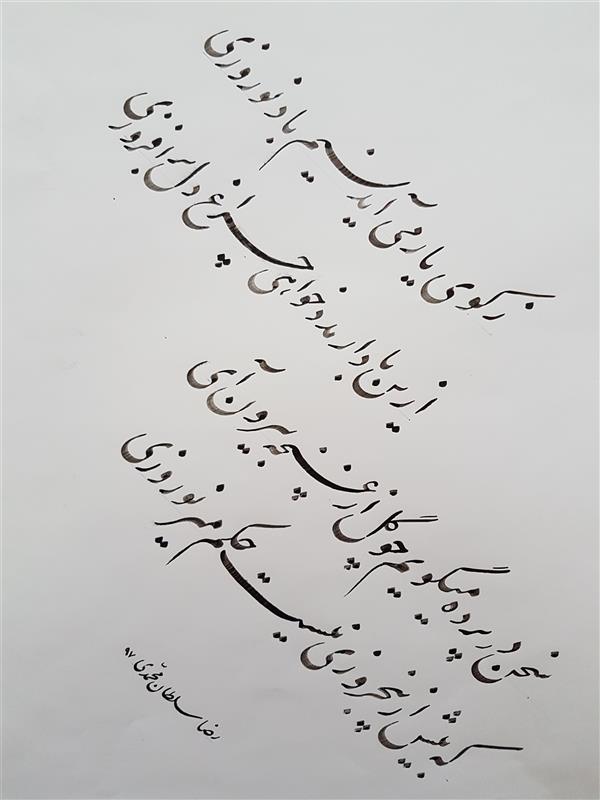 ز کوی یار می آید نسیم باد نوروزی
ازین باد ار مدد خواهی چراغ دل برافروزی
سخن در پرده میگویم چو گل از غنچه بیرون آی
که بیش از پنجروزی نیست حکم میر نوروزی
رضا سلطان محمدی ۹۷